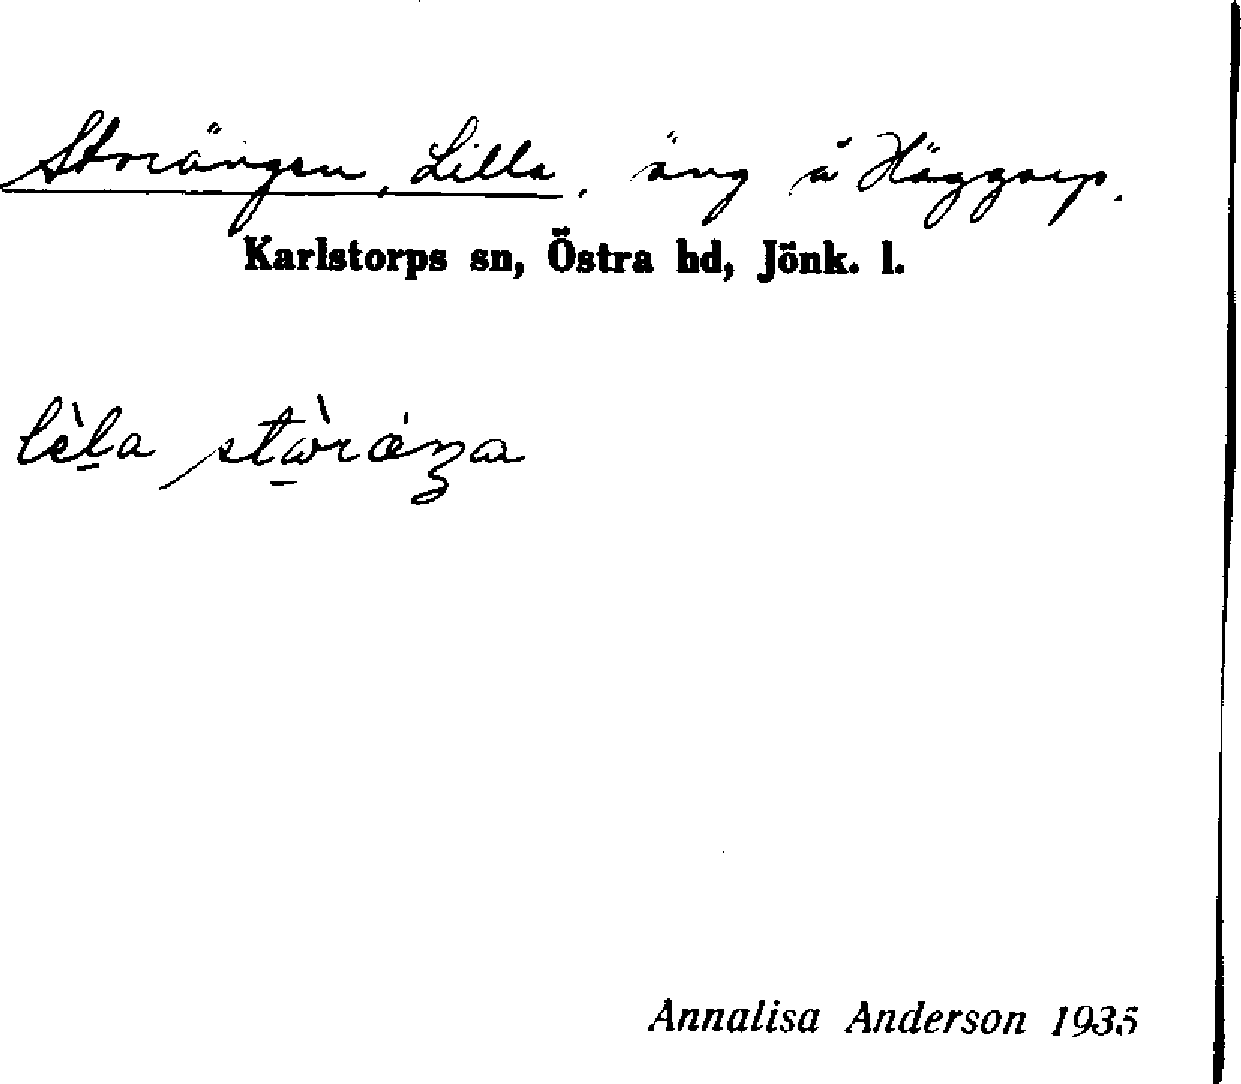 Storängen, Lilla, äng å Häggorp.
Karlstorps sn, Östra hd, Jönk. l.
lèla
Annalisa Anderson 1935